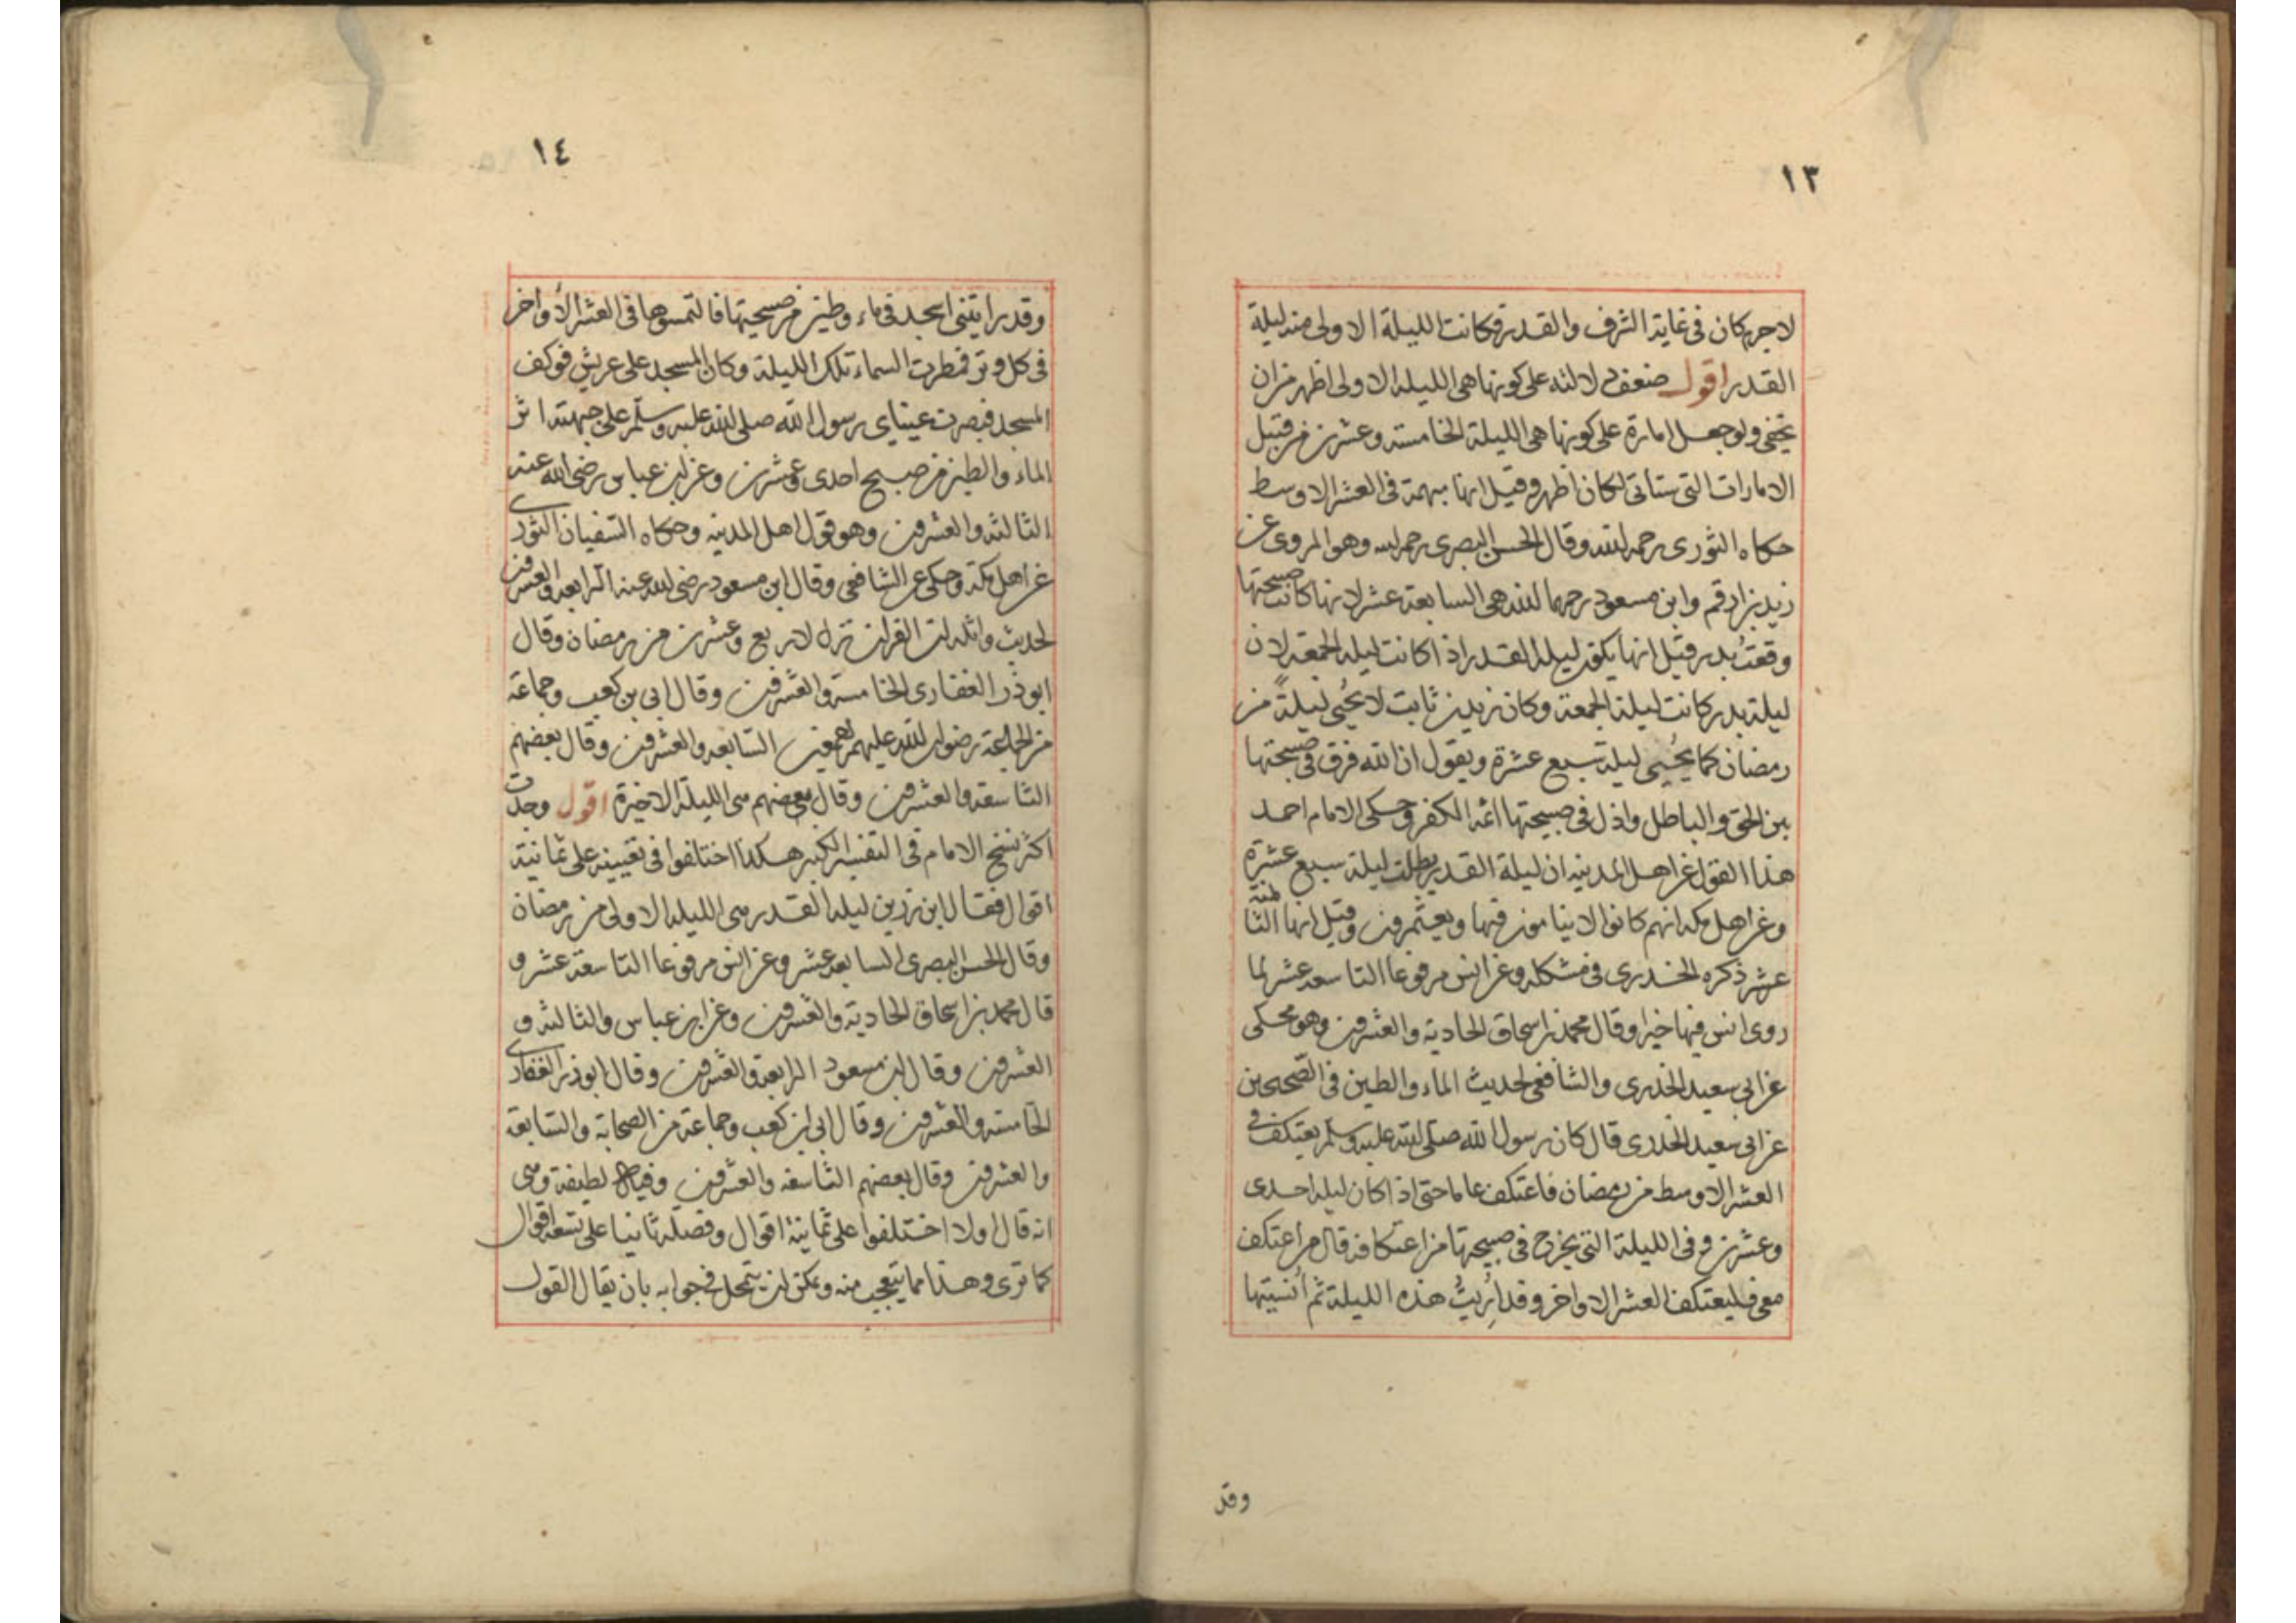 ١٣
لاجرم كان فى غاية الشرف والقدر فكانت الليلة الاولى منه ليلة
القدر اقول ضعف دلالته على كونها هى الليلة الاولى اظهر من ان
يخفى ولو جعل امارة على كونها هى الليلة الخامسة وعشرين من قبيل
الامارات التى ستاتى لكان اظهر وقيل انها مبهمة فى العشر الاوسط
حكاه الثورى رحمه الله وقال الحسن البصرى رحمه الله وهو المروى عن
زيد بن ارقم وابن مسعود رحمهما الله هى السابعة عشر لانها كانت صبيحتها
وقعت بدر وقيل انها يكون ليلة القدر اذا كانت ليلة الجمعة لان
ليلة بدر كانت ليلة الجمعة وكان زيد بن ثابت لا يُحيى ليلةً من
رمضان كما يُحيى ليلة سبع عشرة ويقول ان الله فرق فى صبيحتها
بين الحق والباطل واذل فى صبيحتها ائمة الكفر وحكى الامام احمد
هذا القول عن اهل المدينه ان ليلة القدر يطلب ليلة سبع عشرة
وعن اهل مكه انهم كانوا لا ينامون فيها ويعتمرون وقيل انها الثامنة
عشر ذكره الخدرى فى مشكله وعن انس مرفوعا التاسعه عشر لما
روى انس فيها خبرا وقال محمد بن اسحاق الحادية والعشرين وهو محكى
عن ابى سعيد الخدرى والشافعى لحديث الماء والطين فى الصّحيحين
عن ابى سعيد الخدرى قال كان رسول الله صلى الله عليه وسلم يعتكف فى
العشر الاوسط من رمضان فاعتكف عاما حتى اذا كان ليلة احدى
وعشرين وفى الليلة التى يخرج فى صبيحتها من اعتكافه قال من اعتكف
معى فليعتكف العشر الاواخر وقد اُرِيتُ هذه الليلة ثم اُنسيتها
وقد
١٤
وقد رايتنى اسجد فى ماء وطين من صبيحتها فالتمسوها فى العشر الأواخر
فى كل وتر فمطرت السماء تلك الليلة وكان المسجد على عريش فوكف
المسجد فبصرت عيناى رسول الله صلى الله عليه وسلم على جبهته اثر
الماء والطين من صبيح احدى وعشرين وعن ابن عباس رضى الله عنه
الثالثه والعشرون وهو قول اهل المدينه وحكاه السفيان الثورى
عن اهل مكة وحكى عن الشافعى وقال ابن مسعود رضى الله عنه الرابعه والعشرون
لحديث واثله ان القران نزل لاربع وعشرين من رمضان وقال
ابو ذر الغفارى الخامسة والعشرون وقال ابى بن كعب وجماعة
من الجماعة رضوان الله عليهم اجمعين السابعه والعشرون وقال بعضهم
التاسعه والعشرون وقال بعضهم هى الليلة الاخيرة اقول وجدت
اكثر نسخ الامام فى التفسير الكبير هكذا اختلفوا فى تعيينه على ثمانية
اقوال فقال ابن رزين ليلة القدر هى الليلة الاولى من رمضان
وقال الحسن البصرى السابعه عشر وعن انس مرفوعا التاسعة عشر و
قال محمد بن اسحاق الحادية والعشرون وعن ابن عباس والثالثه و
العشرون وقال ابن مسعود الرابعة والعشرون وقال ابو ذر الغفارى
الخامسه والعشرون وقال ابى ابن كعب وجماعة من الصحابة والسابعة
والعشرون وقال بعضهم التاسعه والعشرون وفيها لطيفة وهى
انه قال اولا اختلفوا على ثمانية اقوال وفصله ثانيا على تسعة اقوال
كما ترى وهذا مما يتعجب منه ويمكن ان يتمحل فى جوابه بان يقال القول